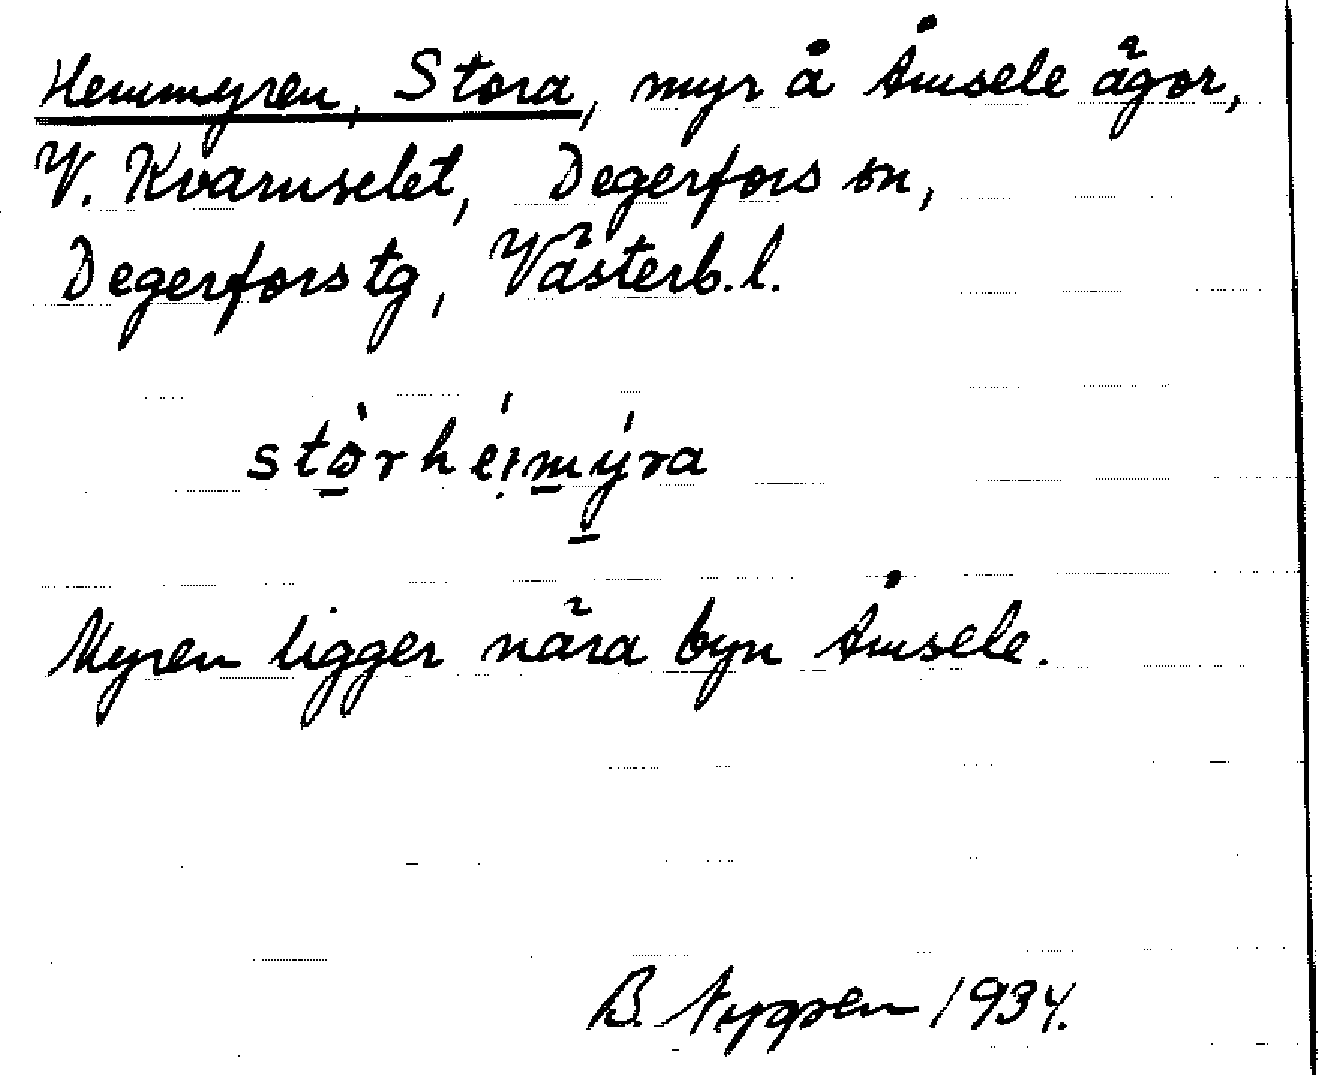 Hemmyren, Stora, myr å Åmsele ägor,
V. Kvarnselet, Degerfors sn,
Degerfors tg, Västerb.l.
stòrhéi̩mýra
Myren ligger nära byn Åmsele.
B. 1934.